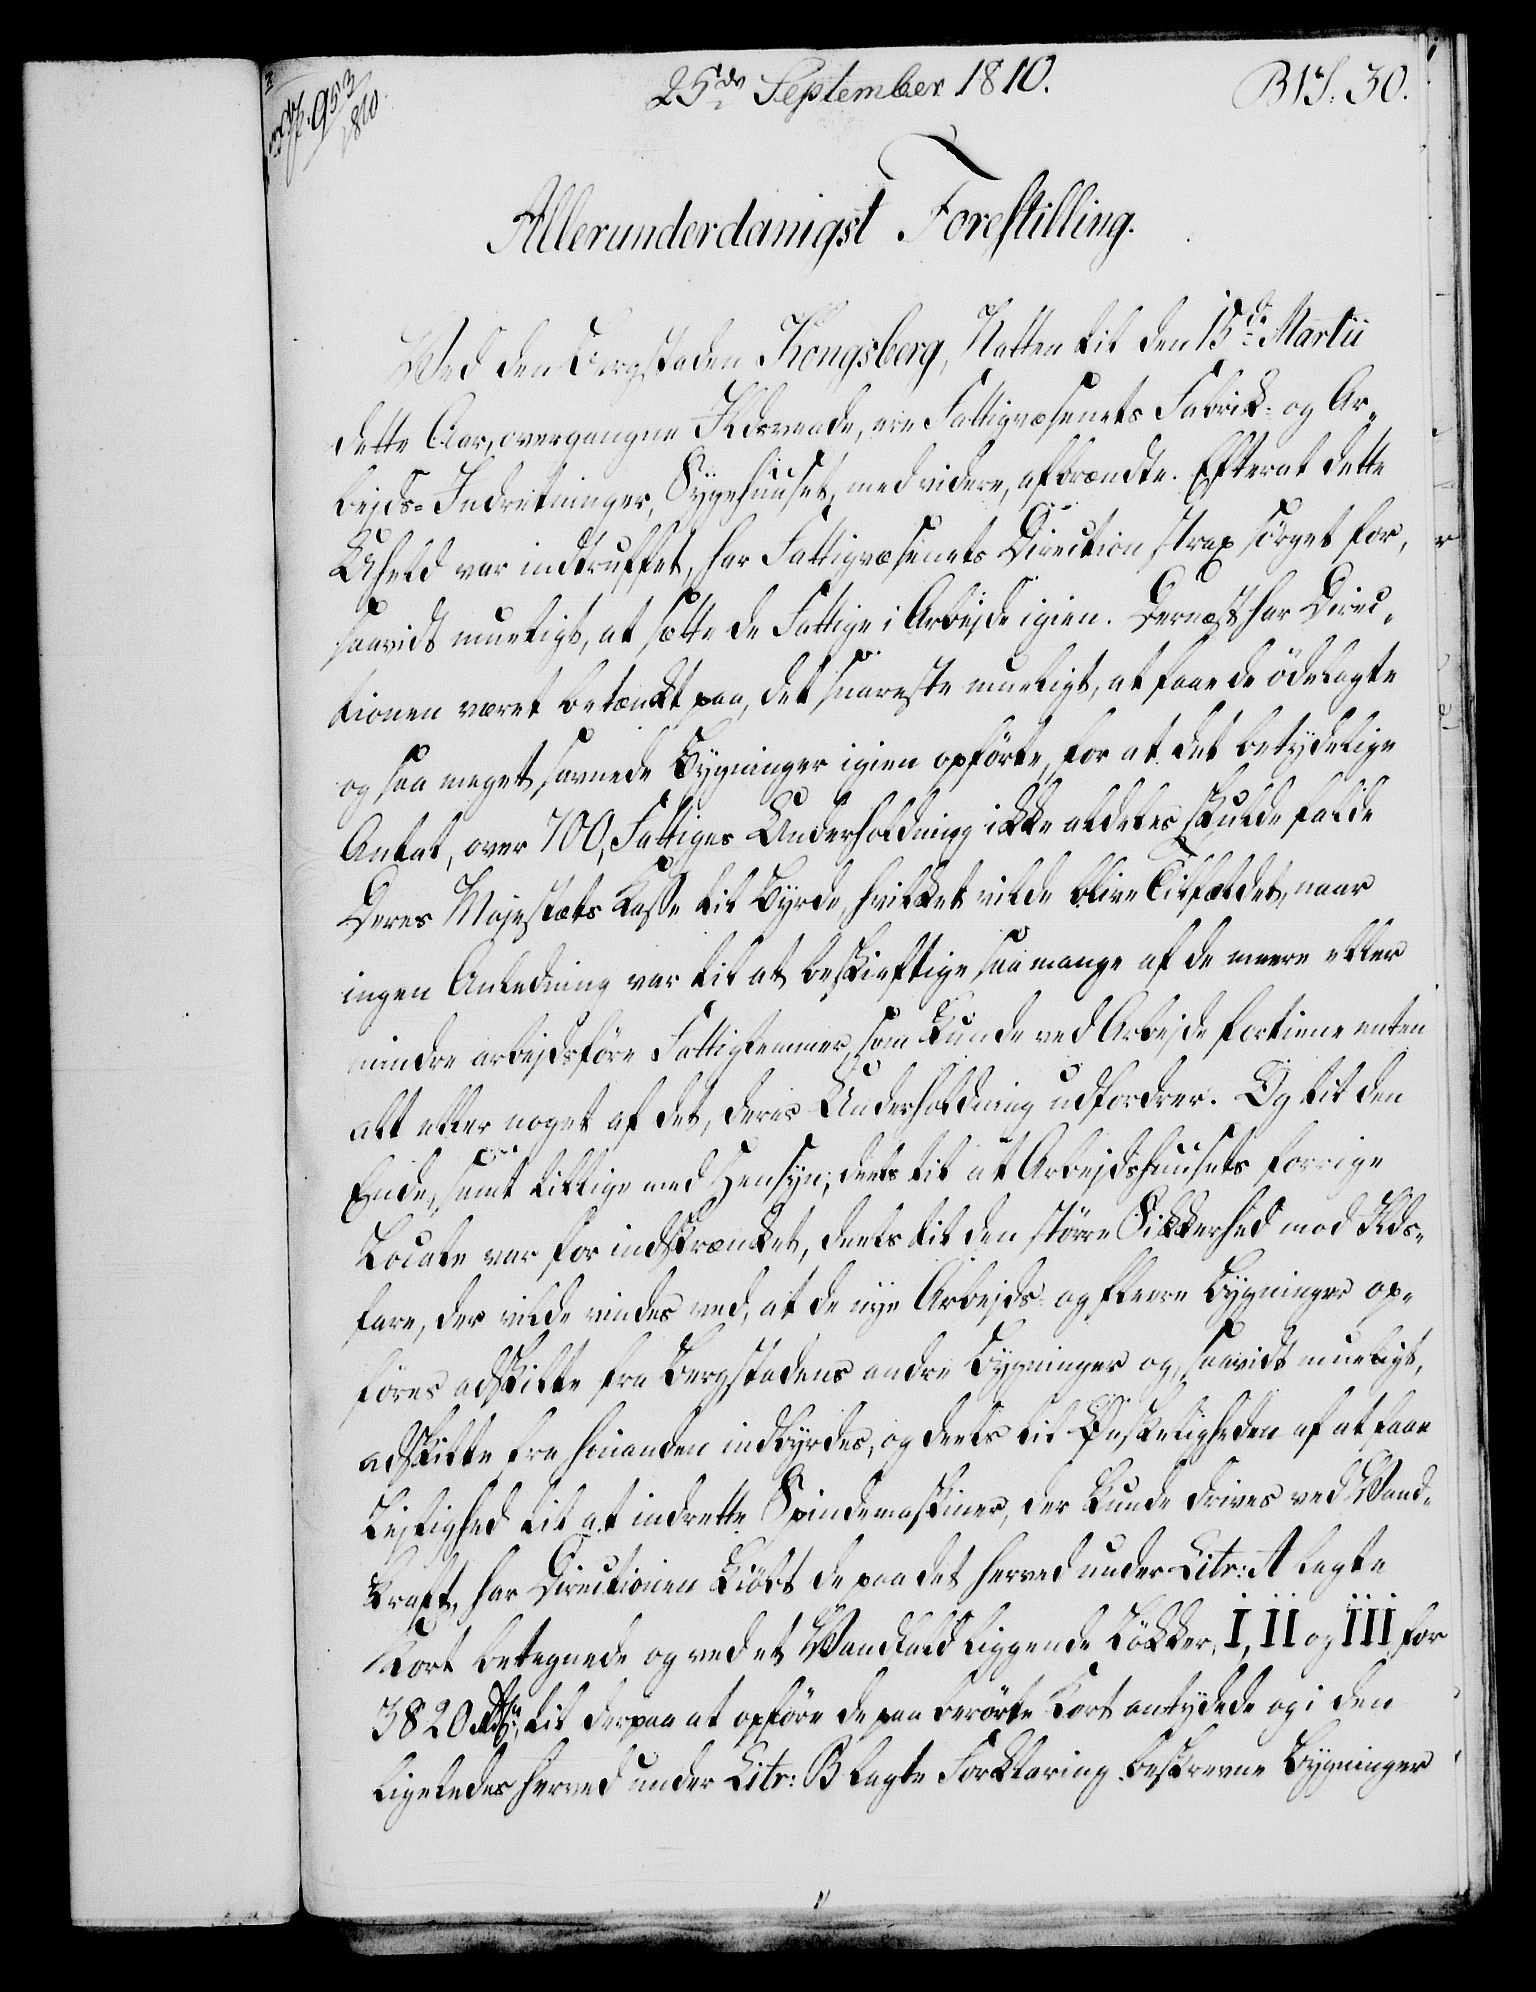 953
1810.
25de September 1810.
B 15. 30.
Allerunderdanigst Forestilling.
Ved den Bergstaden Kongsberg, Natten til den 15de Martii
dette Aar, overgangne Ildsvaade, ere Fattigvæsenets Fabrik- og Ar-
bejds-Indretninger, Sÿgehuuset, med videre, afbrændte. Efterat dette
Uheld var indtruffet, har Fattigvæsenets Direction strax sörget for,
saavidt mueligt, at sætte de Fattige i Arbejde igien. Dernæst har Direc-
tionen været betænkt paa, det snareste mueligt, at faae de ödelagte
og saa meget savnede Bÿgninger igien opförte, for at det betÿdelige
Antal, over 700, Fattiges Underholdning ikke aldeles skulde falde
Deres Majestæts Kasse til Bÿrde, hvilket vilde blive Tilfældet, naar
ingen Anledning var til at beskieftige saa mange af de meere eller
mindre arbejdsföre Fattiglemmer, som kunde ved Arbejde fortiene enten
alt eller noget af det, deres Underholdning udfordrer. Og til den
Ende, samt tillige med Hensÿn, deels til at Arbejdshuusets forrige
Locale var for indskrænket, deels til den större Sikkerhed mod Ilds-
fare, der vilde vindes ved, at de nÿe Arbejds- og fleere Bÿgninger op-
föres adskilte fra Bergstadens andre Bÿgninger og, saavidt mueligt,
adskilte fra hinanden indbÿrdes, og deels til Önskeligheden af at faae
Lejlighed til at indrette Spindemaskiner, der kunde drives ved Vand-
kraft, har Directionen kiöbt de paa det herved under Litr: A lagte
Kort betegnede og ved et Vandfald liggende Lökker, I, II og III for
3820 Rdr, til derpaa at opföre de paa berörte Kort antÿdede og i den
ligeledes herved under Litr: B lagte Forklaring beskrevne Bÿgninger